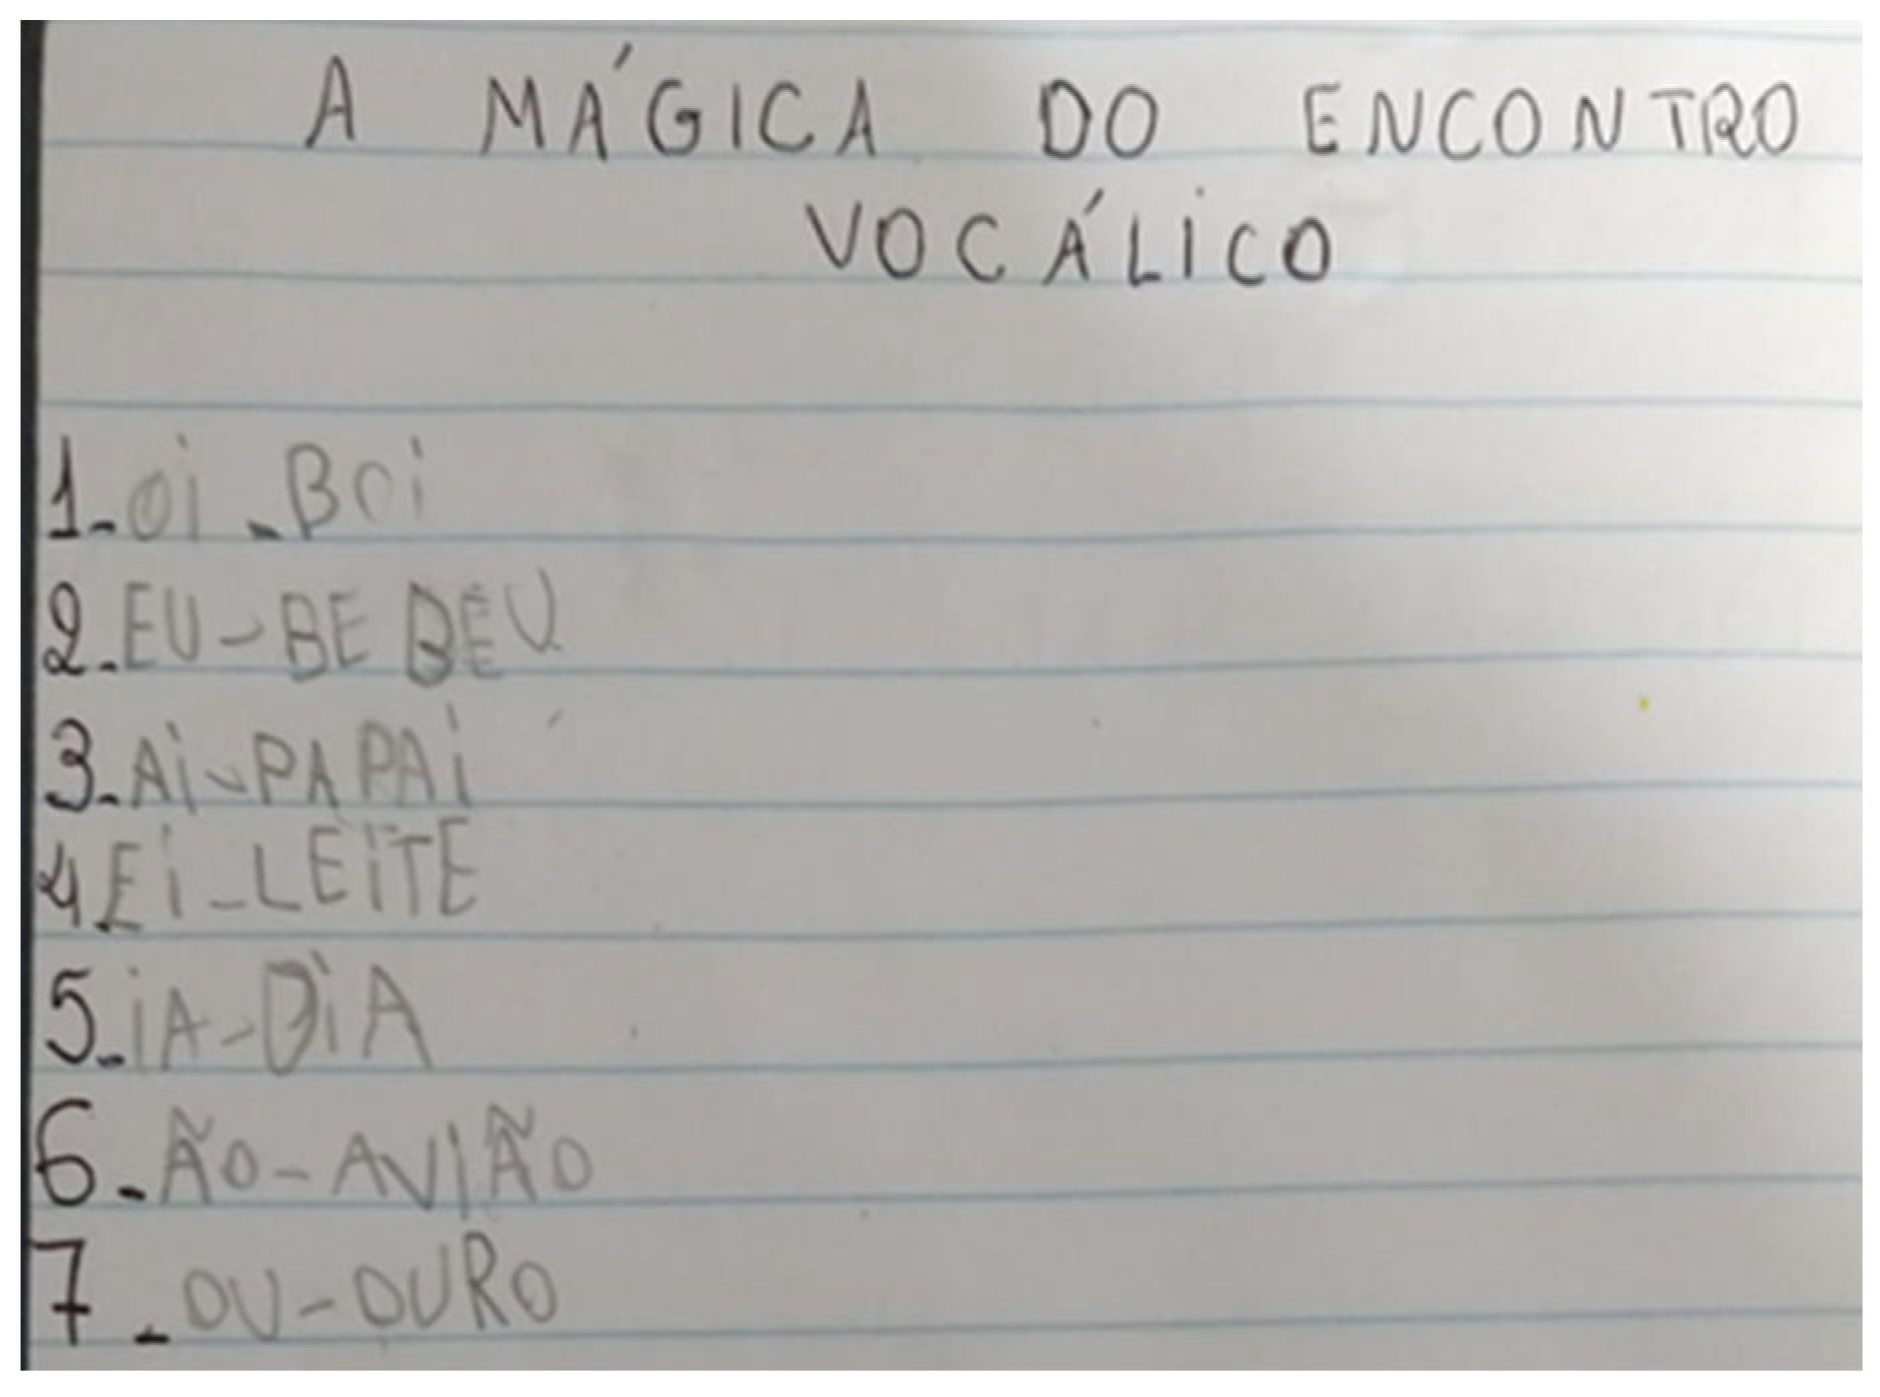 A MÁGICA DO ENCONTRO
VOCÁLICO
1-Oi-BOi
2-EU-BEBEU
3-Ai-PAPAi
4 Ei-LEiTE
5-iA-DiA
6-ÃO-AVIÃO
7-OU-OURO